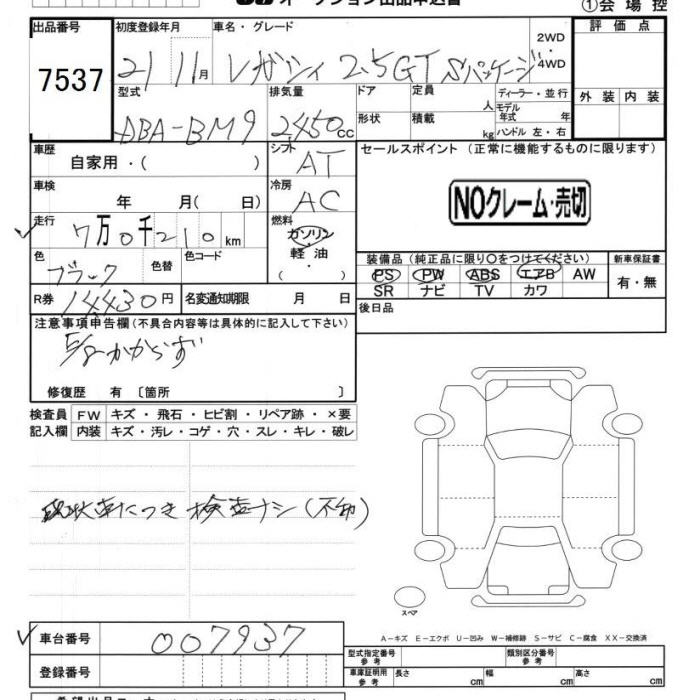 オークション出品申込書
①会場控
出品番号 初度登録年月 車名・グレード 評価点
7537 21 11月 レガシィ 2.5GT Sパッケージ 2WD・4WD
型式 排気量 ドア 定員 人 ディーラー・並行 外装 内装
モデル年式 年
DBA-BM9 2,450cc 形状 積載 kg ハンドル 左・右
車歴 シフト セールスポイント (正常に機能するものに限ります)
自家用・( ) AT
車検 冷房 NOクレーム・売切
年 月( 日) AC
走行 燃料
7万0千210km ガソリン
色 色替 色コード 軽油 装備品 (純正品に限り〇をつけてください) 新車保証書
ブラック ・( ) PS PW ABS エアB AW 有・無
SR ナビ TV カワ
R券 14,430円 名変通知期限 月 日 後日品
注意事項申告欄(不具合内容等は具体的に記入して下さい)
E/gかからず
修復歴 有 〔箇所 〕
検査員 FW キズ・飛石・ヒビ割・リペア跡・×要
記入欄 内装 キズ・汚レ・コゲ・穴・スレ・キレ・破レ
現状車につき 検査ナシ(不動)
A-キズ E-エクボ U-凹み W-補修跡 S-サビ C-腐食 XX-交換済
車台番号 007937
型式指定番号 参考 類別区分番号 参考
登録番号 車庫証明用 参考 長さ cm 幅 cm 高さ cm